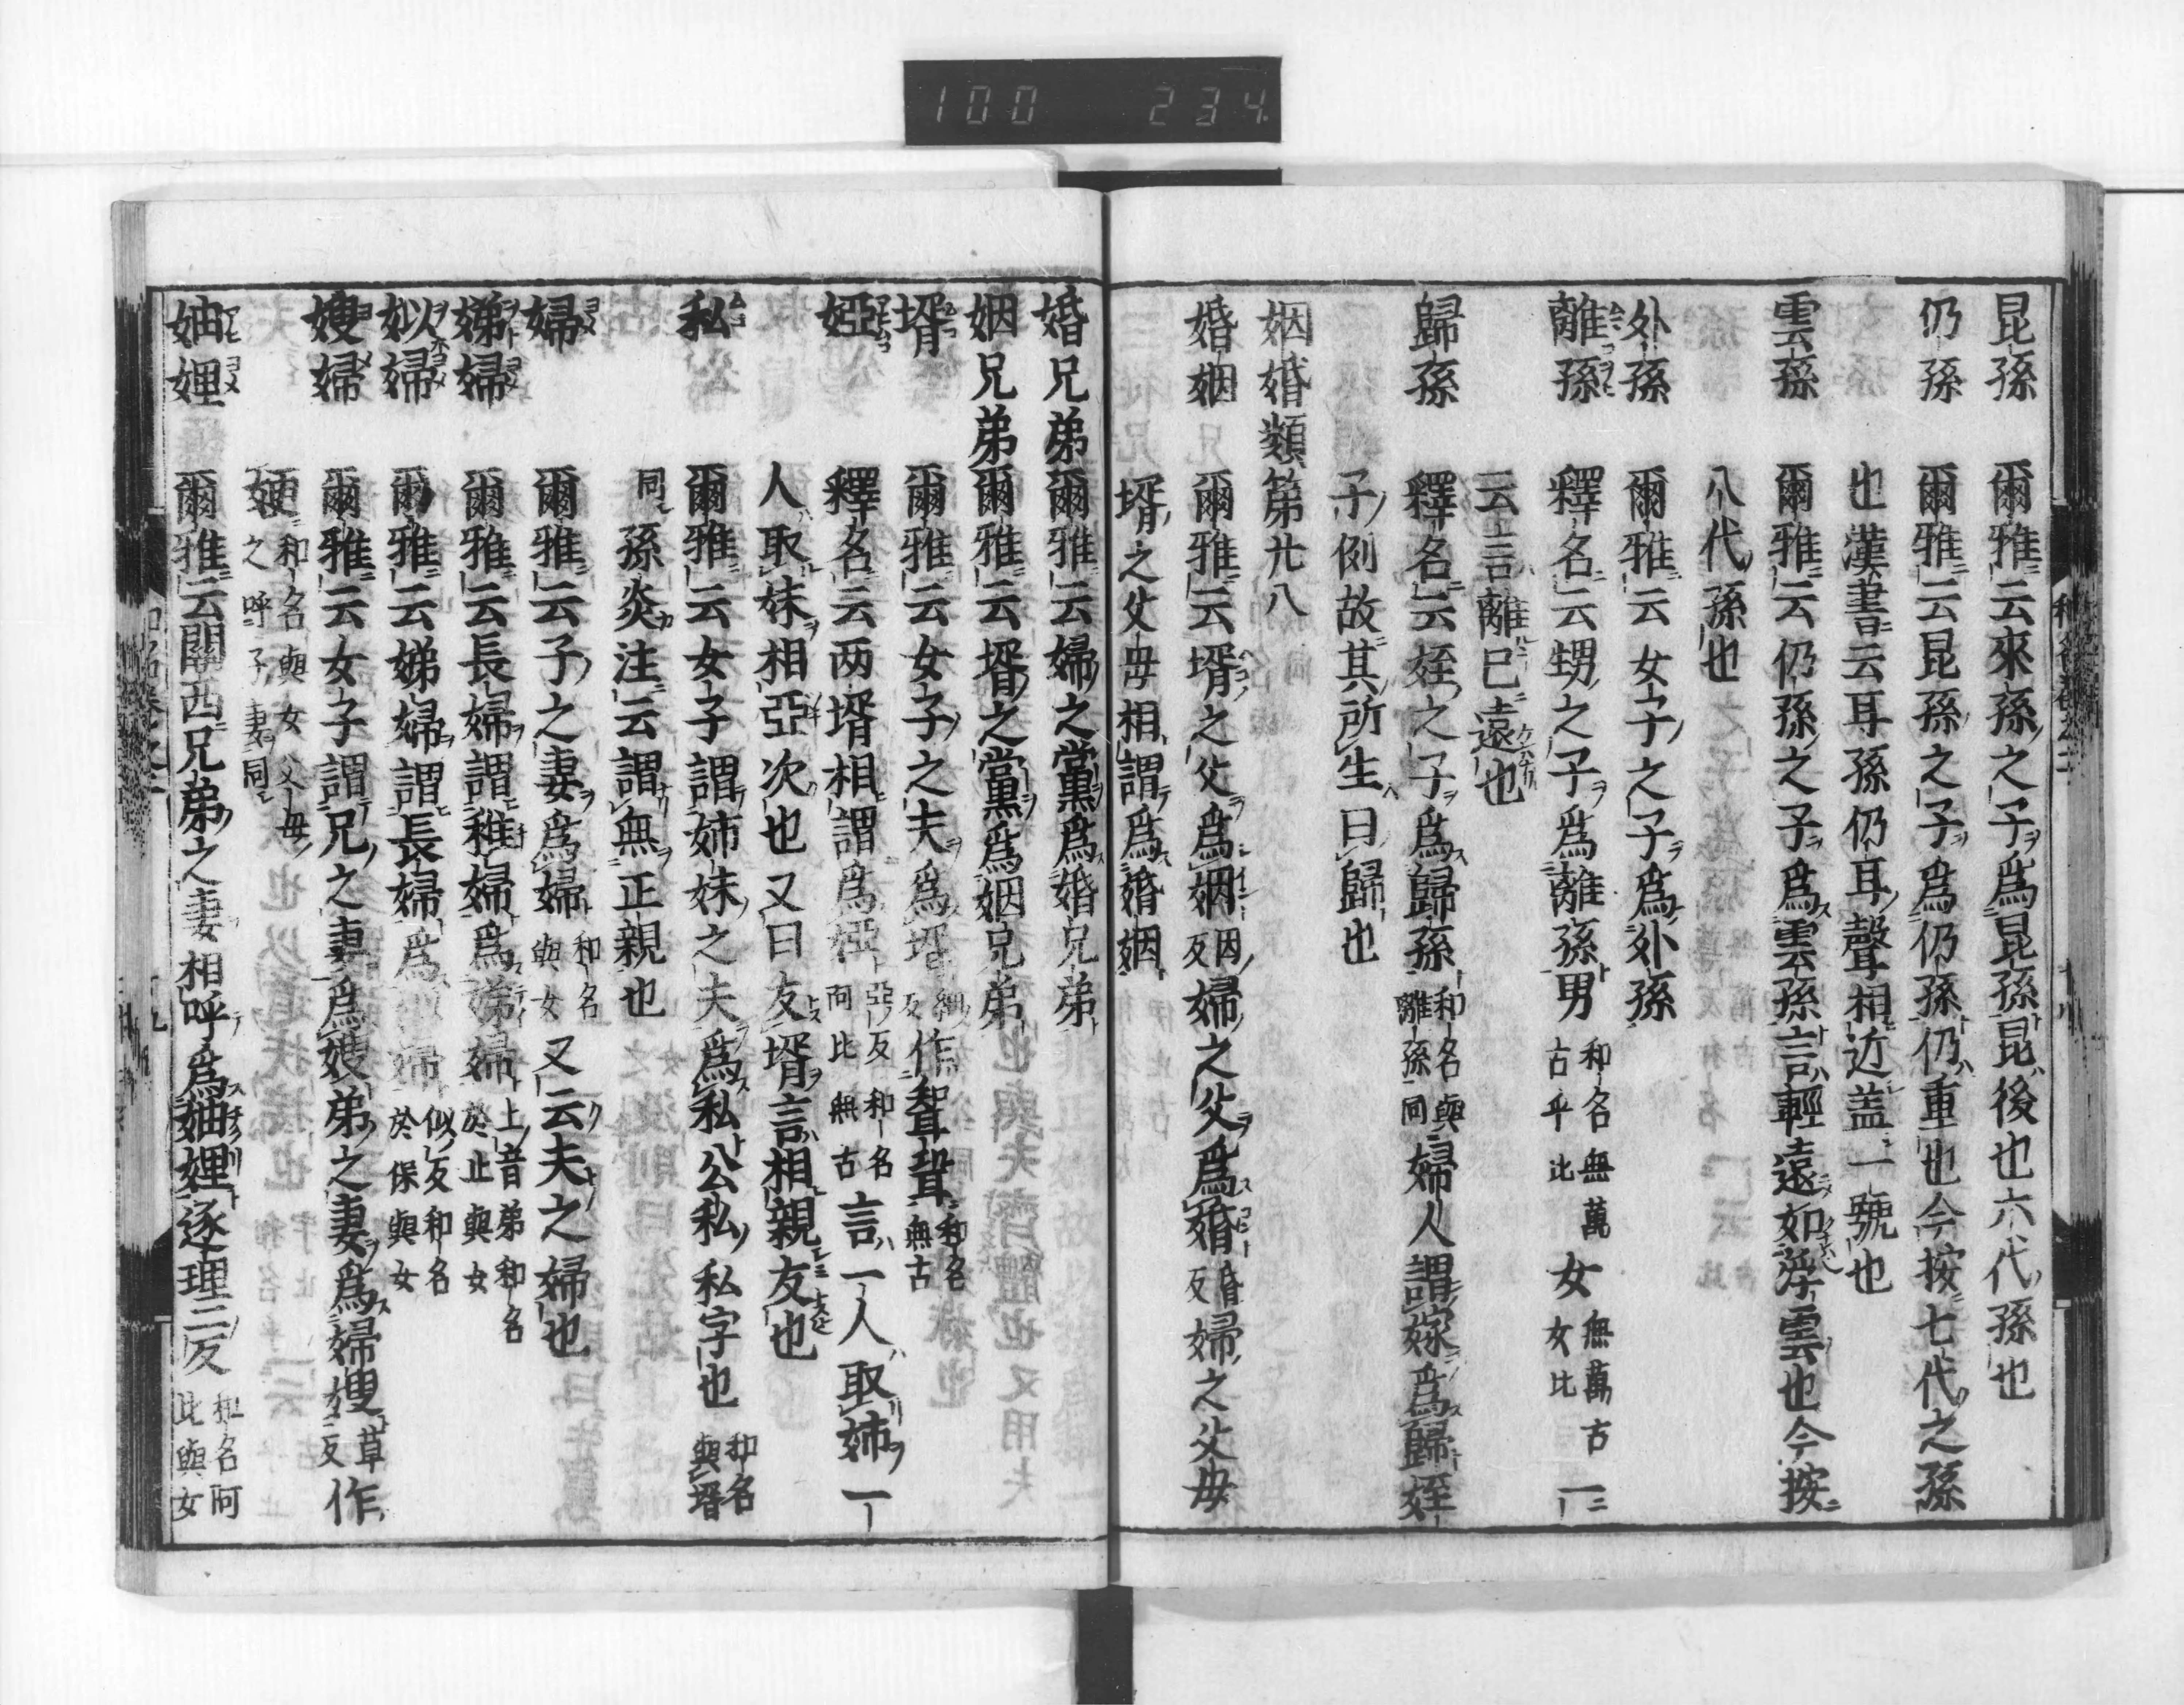 100 234
昆孫 爾雅云來孫之子爲昆孫昆後也六代孫也
仍孫 爾雅云昆孫之子爲仍孫仍重也今按七代之孫
也漢書云耳孫仍耳聲相近盖一號也
雲孫 爾雅云仍孫之子爲雲孫言輕遠如浮雲也今按
八代孫也
外孫 爾雅云女子之子爲外孫
離孫 釋名云甥之子爲離孫男和名無萬古乎比女無萬古女比一
云言離已遠也
歸孫 釋名云姪之子爲歸孫和名與離孫同婦人謂嫁爲歸姪
子例故其所生曰歸也
姻婚類第廿八
婚姻 爾雅云壻之父爲姻因反婦之父爲婚昏反婦之父母
壻之父母相謂爲婚姻
婚兄弟爾雅云婦之黨爲婚兄弟
姻兄弟爾雅云壻之黨爲姻兄弟
壻 爾雅云女子之夫爲壻細反作聟聟和名無古
婭 釋名云两壻相謂爲婭亞反和名阿比無古言一人取姉一
人取妹相亞次也又曰友壻言相親友也
私 爾雅云女子謂姉妹之夫爲私公私私字也和名與壻
同孫炎注云謂無正親也
婦 爾雅云子之妻爲婦和名與女又云夫之婦也
娣婦 爾雅云長婦謂稚婦爲娣婦上音弟和名於止與女
姒婦 爾雅云娣婦謂長婦爲婦似反和名於保與女
嫂婦 爾雅云女子謂兄之妻爲嫂弟之妻爲婦嫂草反作
㛐和名與女父母之呼子妻同
妯娌 爾雅云關西兄弟之妻相呼爲妯娌逐理二反和名阿比與女